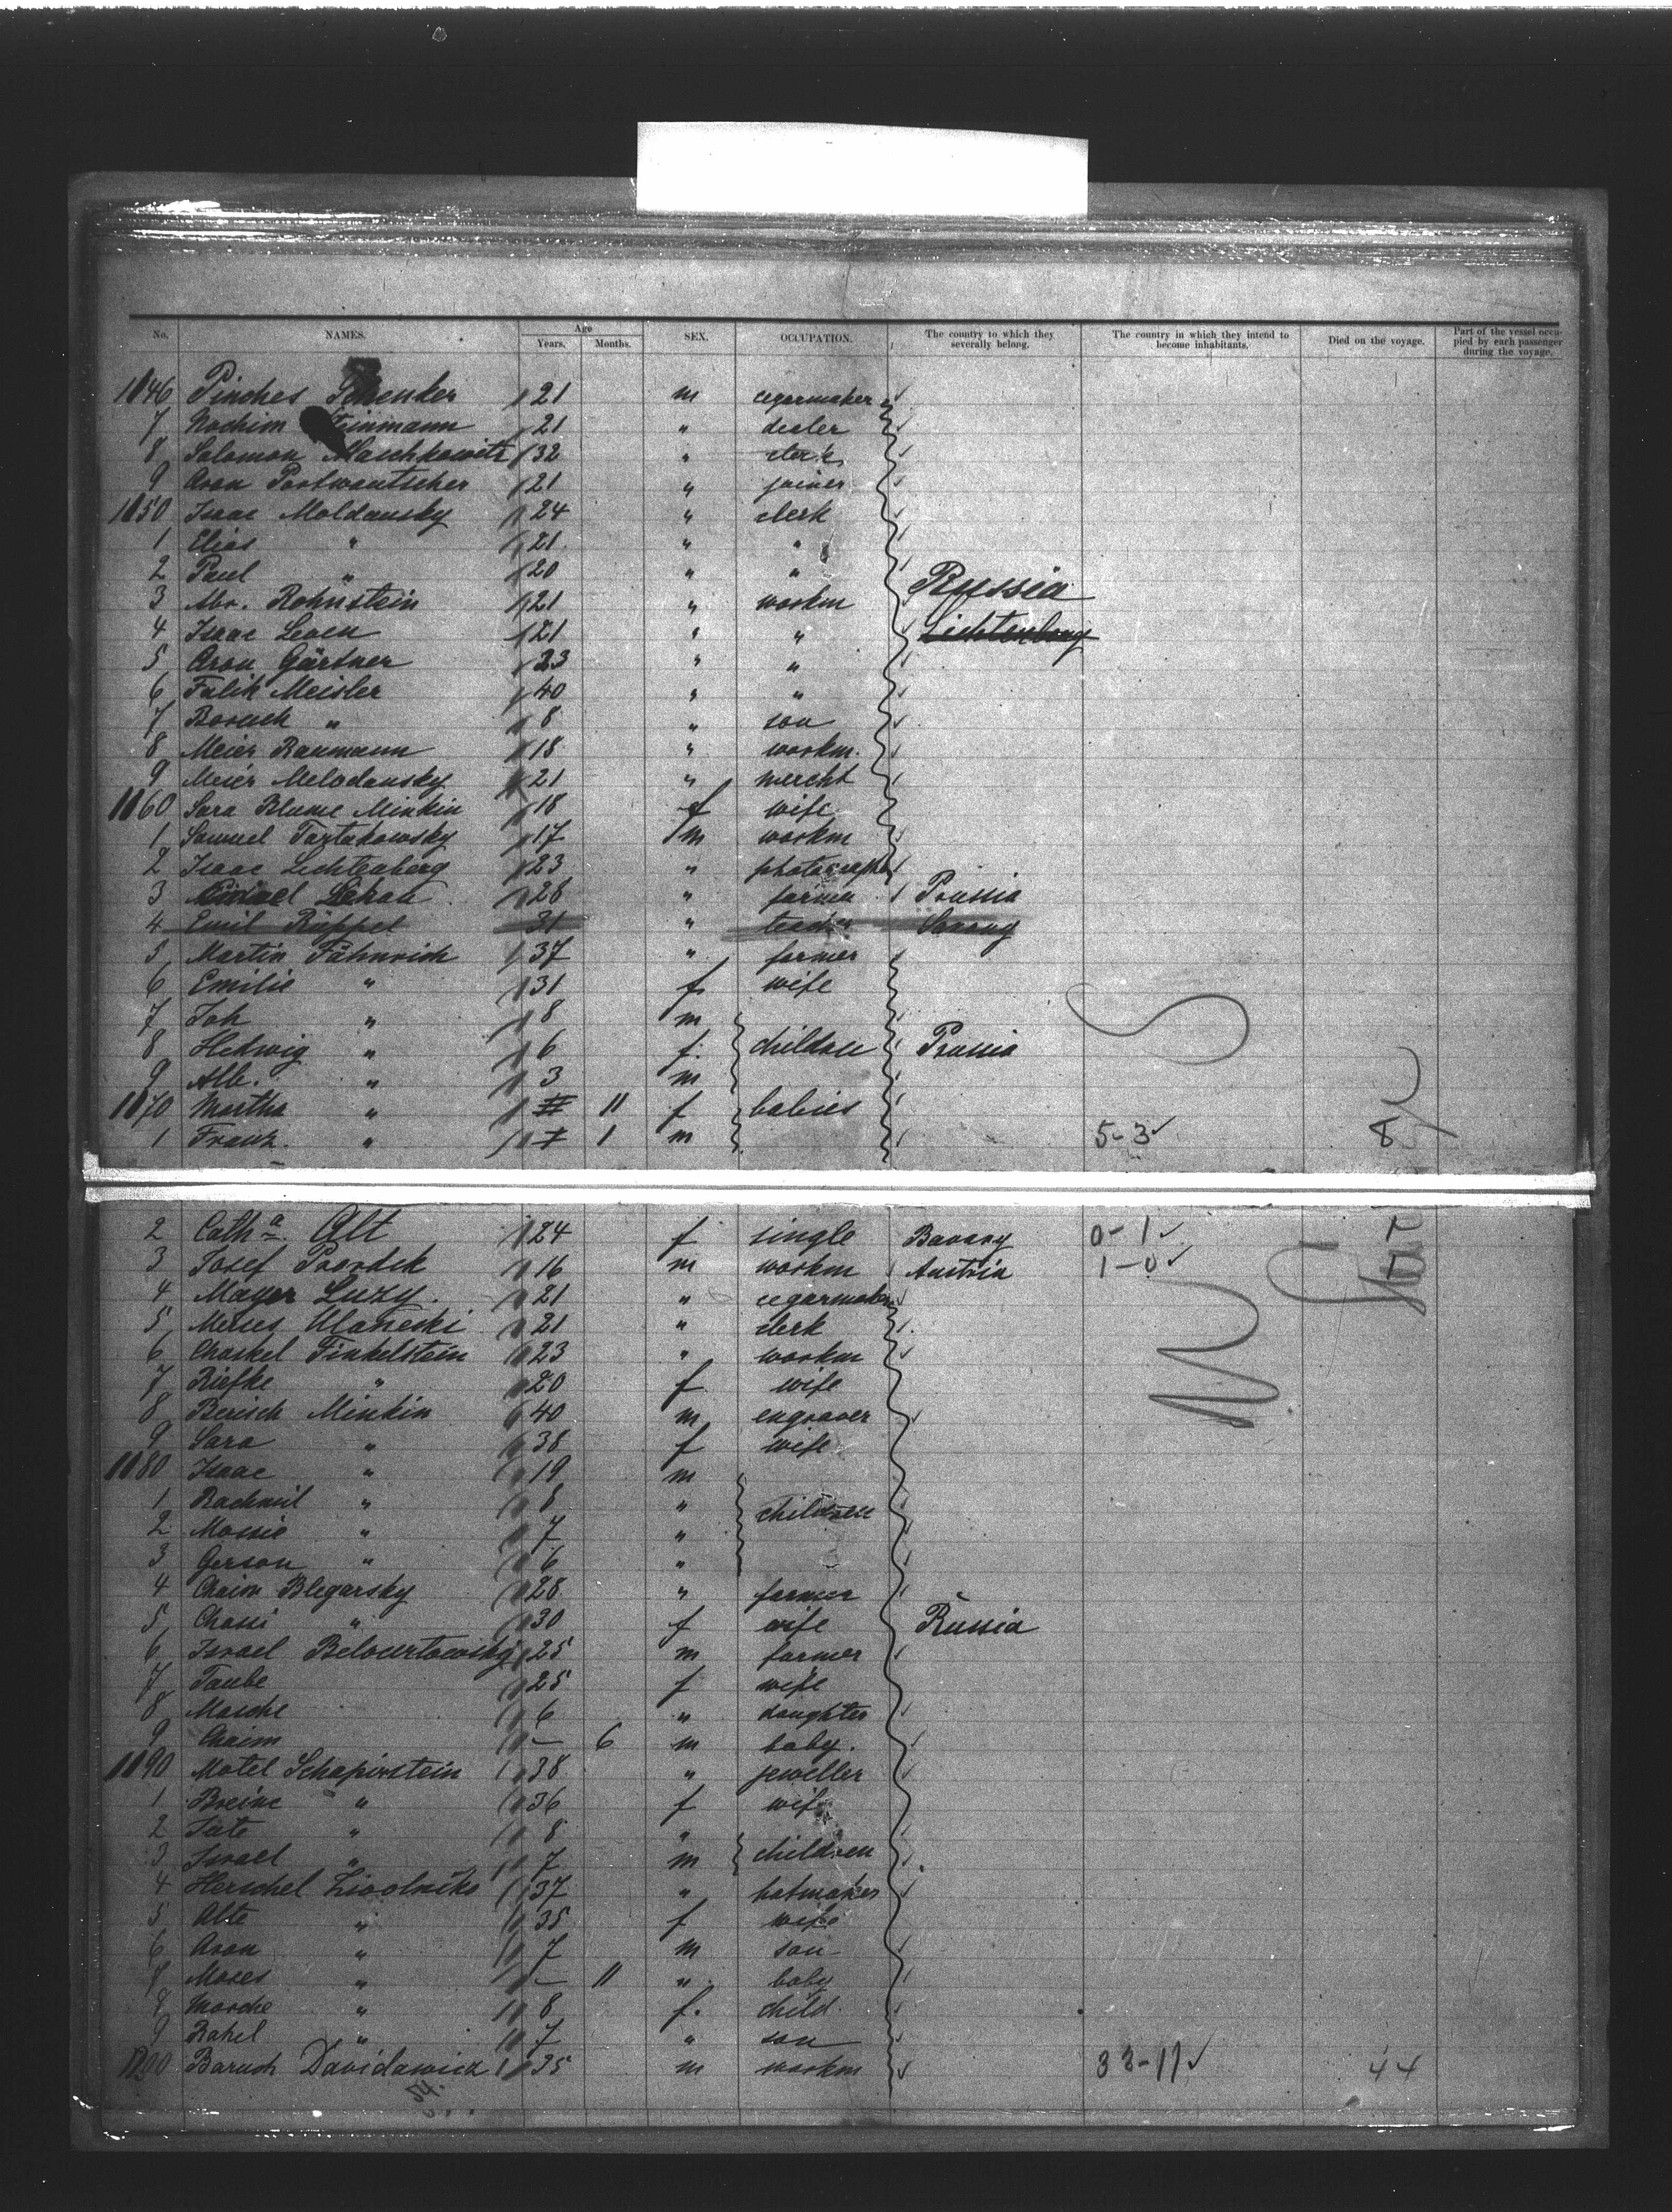 No. NAMES. Age Years. Months. SEX. OCCUPATION. The country to which they severally belong. The country in which they intend to become inhabitants. Died on the voyage. Part of the vessel occupied by each passenger during the voyage.
1146 Pinches Schenker 21 m cegarmaker
7 Nochim Steinmann 21 " dealer
8 Solomon Maschkowitz 32 " clerk
9 Aron 21 " joiner
1150 Isaac Moldausky 24 " clerk
1 Elias " 21 " "
2 Paul " 20 " "
3 Abr. Rohnstein 21 " workm Russia
4 Isaac Leven 21 " " Lichtenberg
5 Aron Gärtner 23 " "
6 Falik Meisler 40 " "
7 Boruch " 8 " son
8 Meier Raumann 18 " workm.
9 Meier Melodausky 21 " mercht
1160 Sara Blume Minkin 18 f wife
1 Samuel Tartakowsky 17 m workm
2 Isaac Lichtenberg 23 " photographer
3 28 " farmer Prussia
4 Emil Rüppel 31 " teacher
5 Martin Fähnrich 37 " farmer
6 Emilie " 31 f wife
7 Joh " 8 m
8 Hedwig " 6 f. children Prussia
9 Alb. " 3 m
1170 Martha " 11 f babies
1 Franz. " 1 m 5-3 8
2 Cath a. Alt 24 f single Bavary 0-1
3 Josef 16 m workm Austria 1-0
4 Mayer Luzy. 21 " cegarmaker
5 21 " clerk
6 Chaskel Finkelstein 23 " workm
7 Riefke " 20 f wife
8 Berisch Minkin 40 m engraver
9 Sara " 38 f wife
1180 Isaac " 19 m
1 Rachmil " 8 " children
2 Mossie " 7 "
3 Gerson " 6 "
4 Chaim Blegarsky 28 " farmer
5 Chassi " 30 f wife Russia
6 Israel 25 m farmer
7 Taube 25 f wife
8 Masche 6 " daughter
9 Chaim — 6 m baby.
1190 Motel Schapirstein 38 " jeweller
1 Breine " 36 f wife
2 " 8 "
3 Israel " 7 m children
4 Herschel 37 " hatmaker
5 Alte " 35 f wife
6 Aron " 7 m son
7 Moses " — 11 " baby
8 Mosche " 8 f. child
9 Rahel " 7 " son
Baruch Davidawicz 35 m workm 33-11 44